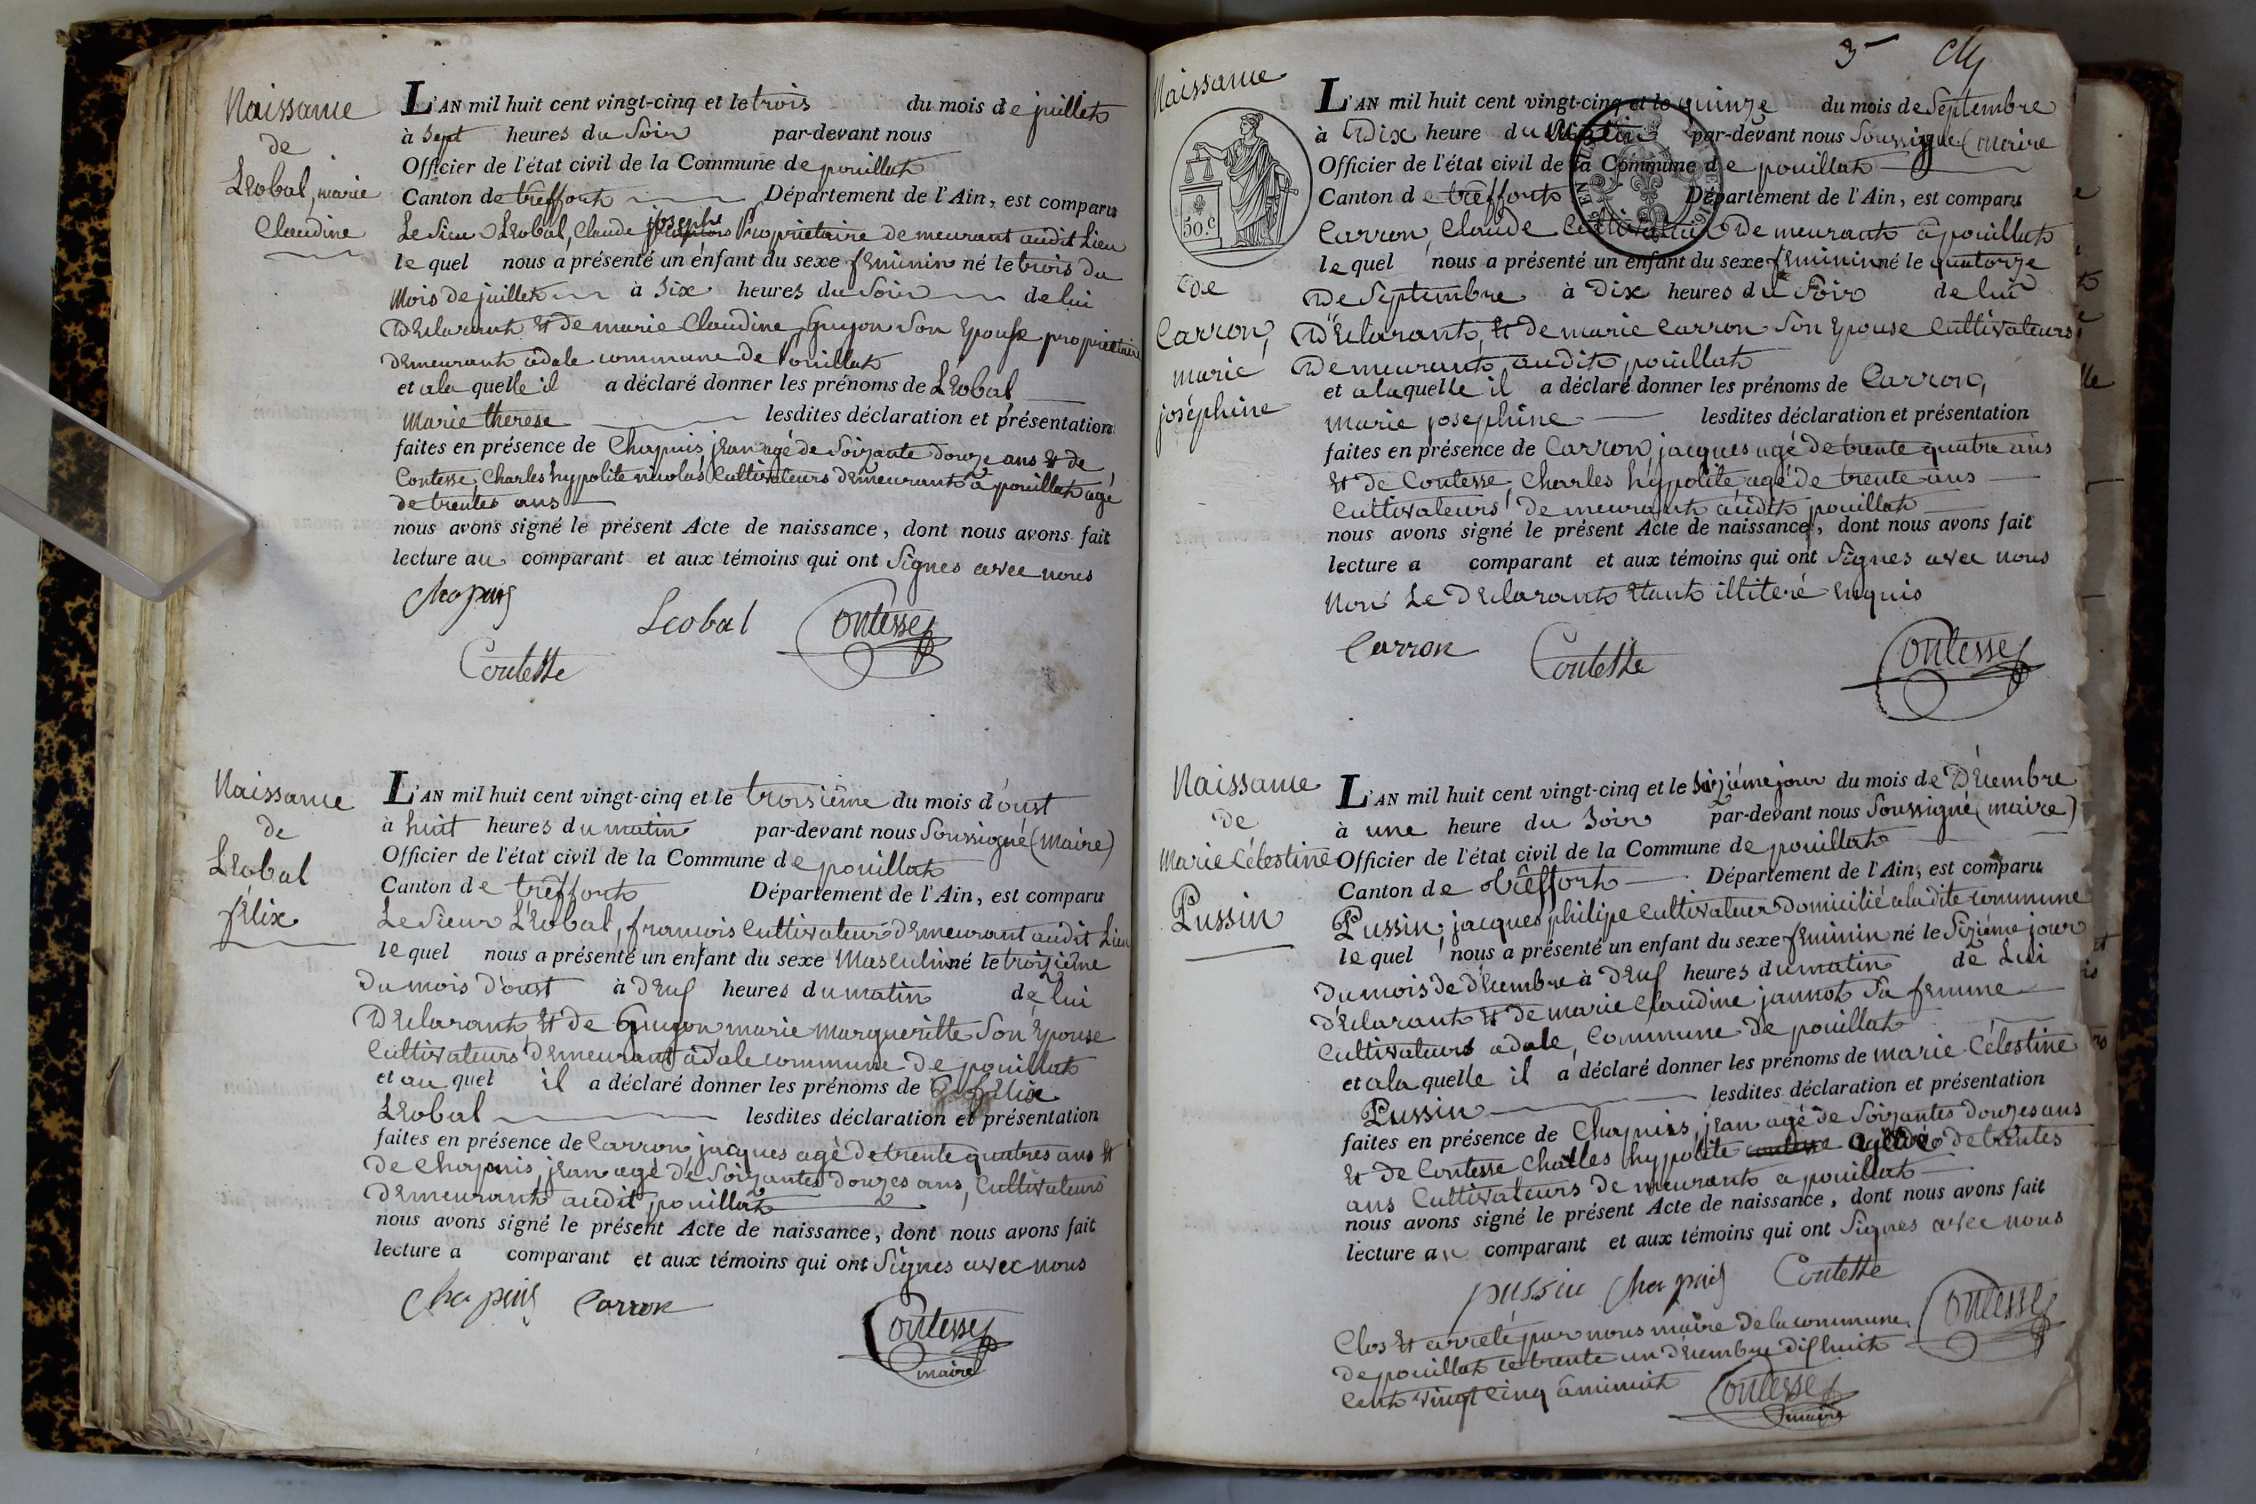 Naissance
de
Léobal, marie
Claudine
L'AN mil huit cent vingt-cinq et le trois du mois de juillet
à sept heures du Soir par-devant nous
Officier de l'état civil de la Commune de pouillat
Canton de treffort Département de l'Ain, est comparu
Le Sieur Léobal, Claude joseph Propriétaire demeurant audit Lieu
le quel nous a présenté un enfant du sexe feminin né le trois du
Mois de juillet à Six heures du Soir de lui
Déclarant et de marie Claudine Guyon Son Epouse proprietaire
demeurant adale commune de Pouillat
et a la quelle il a déclaré donner les prénoms de Léobal
Marie therese lesdites déclaration et présentation
faites en présence de Chapuis, jean agé de Soixante douze ans et de
Contesse, Charles hypolite nicolas Cultivateurs demeurant a pouillat agé
de trentes ans
nous avons signé le présent Acte de naissance, dont nous avons fait
lecture au comparant et aux témoins qui ont Signés avec nous
Chapuis
Léobal
Contesse
Contesse
Naissance
de
Léobal
félix
L'AN mil huit cent vingt-cinq et le troisiême du mois d'oust
à huit heures du matin par-devant nous Soussigné (Maire)
Officier de l'état civil de la Commune de pouillat
Canton de treffort Département de l'Ain, est comparu
Le Sieur Léobal, francois Cultivateur demeurant audit Lieu
le quel nous a présenté un enfant du sexe Masculin né le troiziême
du mois d'oust à deuf heures du matin de lui
Déclarant et de Guyon marie margueritte Son Epouse
Cultivateurs demeurant adale commune de pouillat
et au quel il a déclaré donner les prénoms de félix
Léobal lesdites déclaration et présentation
faites en présence de Carron, jacques agé de trente quatres ans et
de Chapuis, jean agé de Soixantes douzes ans, Cultivateurs
demeurant audit pouillat
nous avons signé le présent Acte de naissance, dont nous avons fait
lecture a comparant et aux témoins qui ont Signés avec nous
Chapuis Carron
Contesse
maire
3
Naissance
50.C
de
Carron,
marie
joséphine
L'AN mil huit cent vingt-cinq et le quinze du mois de Septembre
à Dix heure du Matin par-devant nous Soussigné (maire
Officier de l'état civil de la Commune de pouillat
Canton de treffort Département de l'Ain, est comparu
Carron, Claude Cultivateur demeurant à pouillat
le quel nous a présenté un enfant du sexe feminin né le quatorze
de Septembre à Dix heures du Soir de lui
Déclarant, et de marie Carron Son Epouse Cultivateurs
demeurant audit pouillat
et a laquelle il a déclaré donner les prénoms de Carron,
Marie josephine lesdites déclaration et présentation
faites en présence de Carron, jacques agé de trente quatre ans
et de Contesse, Charles hypolite agé de trente ans
Cultivateurs demeurant audit pouillat
nous avons signé le présent Acte de naissance, dont nous avons fait
lecture a comparant et aux témoins qui ont Signés avec nous
Non Le Déclarant étant illiteré enquis
Carron
Contesse
Contesse
Naissance
de
Marie Célestine
Pussin
L'AN mil huit cent vingt-cinq et le Siziéme jour du mois de Décembre
à une heure du Soir par-devant nous Soussigné (maire)
Officier de l'état civil de la Commune de pouillat
Canton de trêffort Département de l'Ain, est comparu
Pussin, jacques philipe Cultivateur Domicilié a la dite commune
le quel nous a présenté un enfant du sexe feminin né le Siziéme jour
du mois de décembre à deuf heures du matin de Lui
déclarant et de marie Claudine jannot Sa femme
Cultivateurs adale, Commune de pouillat
et a la quelle il a déclaré donner les prénoms de marie Célestine
Pussin lesdites déclaration et présentation
faites en présence de Chapuis, jean agé de Soixantes douzes ans
et de Contesse Charles hypolite de trentes
ans Cultivateurs demeurant a pouillat
nous avons signé le présent Acte de naissance, dont nous avons fait
lecture au comparant et aux témoins qui ont Signés avec nous
pussin Chapuis Contesse
Contesse
Clos et arreté par nous maire de la commune
de pouillat le trente un décembre dixhuit
Cent vingt Cinq à minuit
Contesse
maire